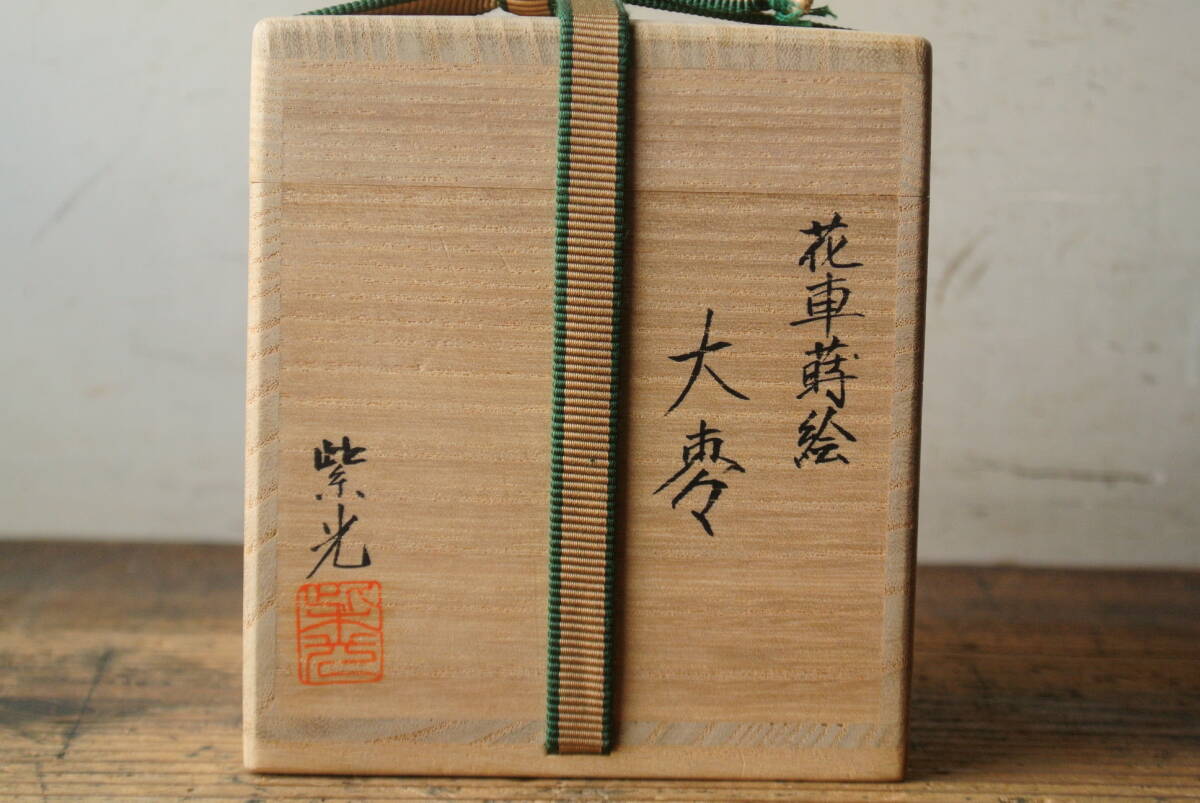 花車蒔絵
大棗
紫光
紫光